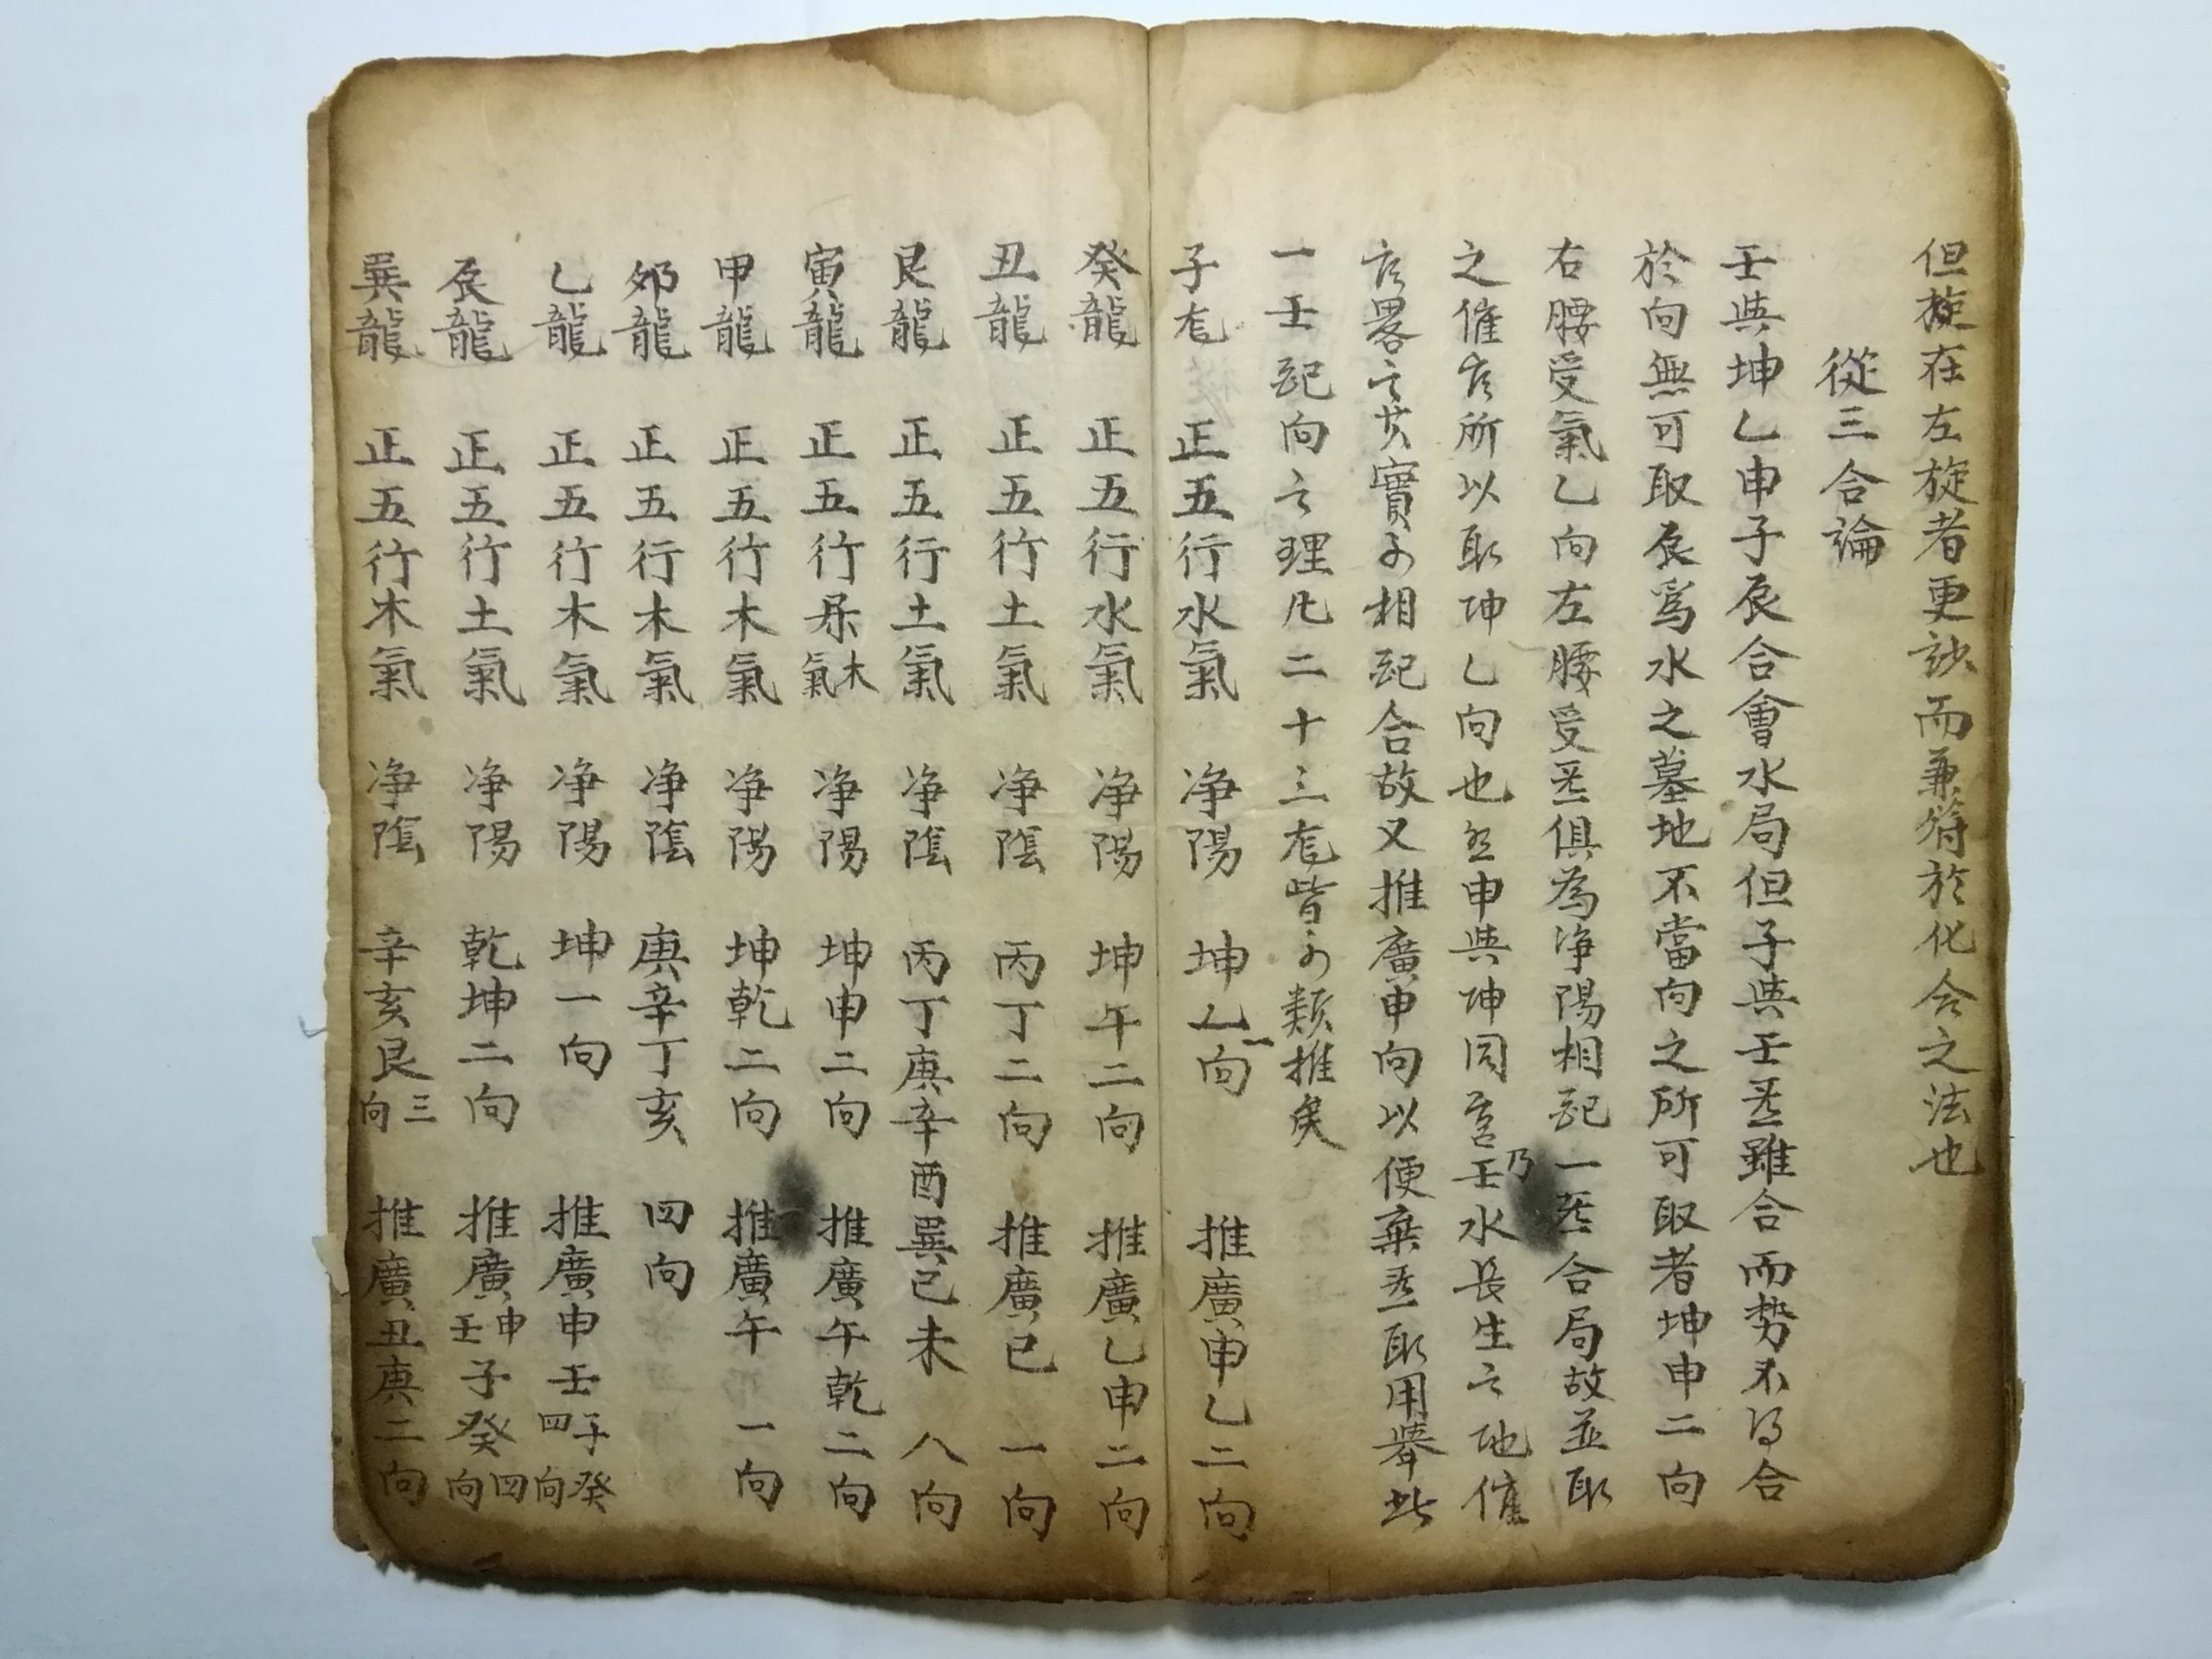 但旋在左旋者更妙而兼符於化合之法也
從三合論
壬與坤乙申子辰合會水局但子與壬炁雖合而勢不得合
於向無可取辰爲水之墓地不當向之所可取者坤申二向
右腰受氣乙向左腰受炁俱為净陽相配一炁合局故並取
之催官所以取坤乙向也然申與坤同宮乃壬水長生之地催
官畧之其實亦相配合故又推廣申向以便棄炁取用舉此
一壬配向之理凡二十三龙皆可類推矣
子龙 正五行水氣 净陽 坤乙二向 推廣申乙二向
癸龍 正五行水氣 净陽 坤午二向 推廣乙申二向
丑龍 正五行土氣 净陰 丙丁二向 推廣巳一向
艮龍 正五行土氣 净陰 丙丁庚辛酉巽巳未八向
寅龍 正五行木氣 净陽 坤申二向 推廣午乾二向
甲龍 正五行木氣 净陽 坤乾二向 推廣午一向
夘龍 正五行木氣 净陰 庚辛丁亥四向
乙龍 正五行木氣 净陽 坤一向 推廣申壬子癸四向
辰龍 正五行土氣 净陽 乾坤二向 推廣申壬子癸四向
巽龍 正五行木氣 净陰 辛亥艮三向 推廣丑庚二向